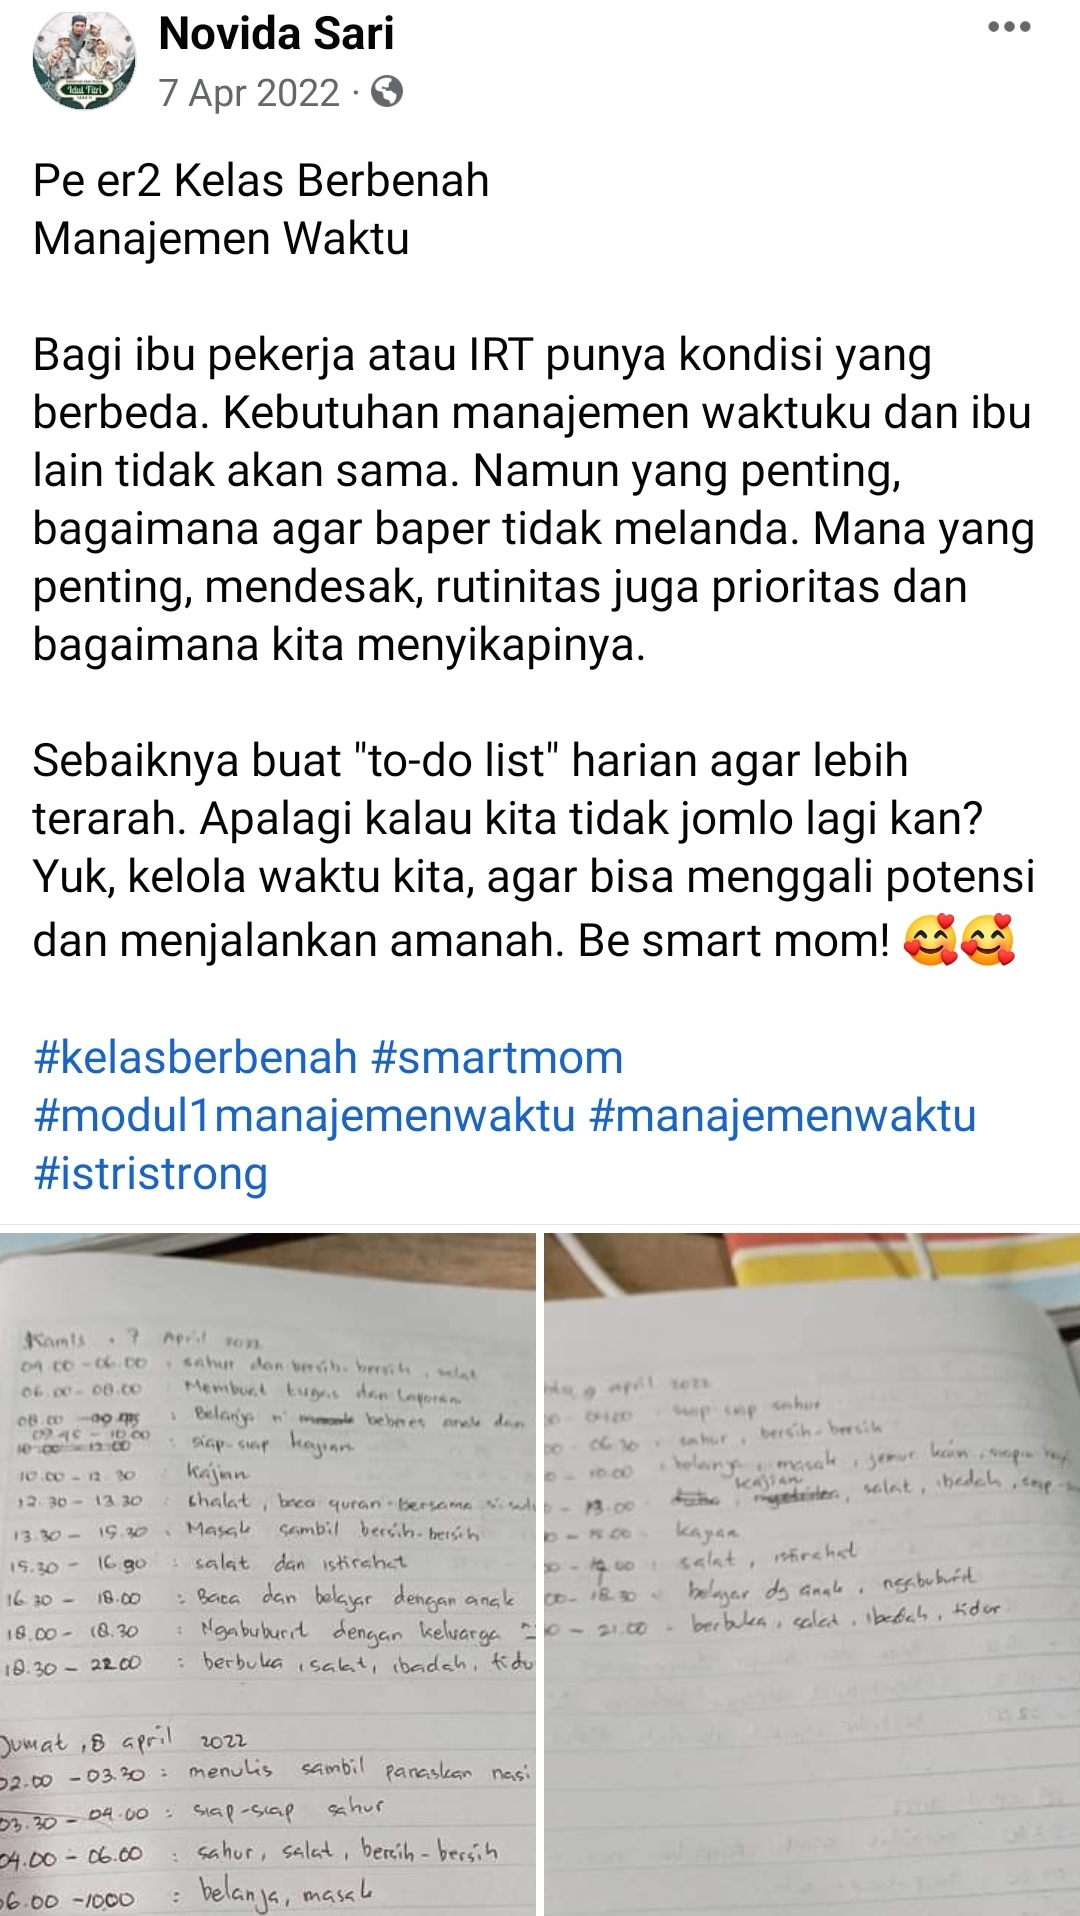 Novida Sari
7 Apr 2022 ·
Pe er2 Kelas Berbenah
Manajemen Waktu
Bagi ibu pekerja atau IRT punya kondisi yang
berbeda. Kebutuhan manajemen waktuku dan ibu
lain tidak akan sama. Namun yang penting,
bagaimana agar baper tidak melanda. Mana yang
penting, mendesak, rutinitas juga prioritas dan
bagaimana kita menyikapinya.
Sebaiknya buat "to-do list" harian agar lebih
terarah. Apalagi kalau kita tidak jomlo lagi kan?
Yuk, kelola waktu kita, agar bisa menggali potensi
dan menjalankan amanah. Be smart mom! 🥰🥰
#kelasberbenah #smartmom
#modul1manajemenwaktu #manajemenwaktu
#istristrong
Kamis, 7 April 2022
04.00-06.00 : sahur dan bersih-bersih, salat
06.00-08.00 Membuat tugas dan laporan
08.00 Belanja beberes anak dan
09.45-10.00 : siap-siap kajian
10.00-12.30 : Kajian
12.30-13.30 : shalat, baca quran bersama
13.30-15.30 : Masak sambil bersih-bersih
15.30-16.30 : salat dan istirahat
16.30-18.00 : Baca dan belajar dengan anak
18.00-18.30 : Ngabuburit dengan keluarga
18.30-22.00 : berbuka, salat, ibadah, tidu
Jumat, 8 april 2022
02.00-03.30 : menulis sambil panaskan nasi
03.30-04.00 : siap-siap sahur
04.00-06.00 : sahur, salat, bersih-bersih
06.00-1000 : belanja, masak
9 april 2022
siap siap sahur
06.30 sahur, bersih-bersih
10.00 belanja, masak, jemur
kajian
13.00 salat, ibadah
15.00 kajian
salat, istirahat
18.30 belajar dg anak, ngabuburit
21.00 berbuka, salat, ibadah, tidur